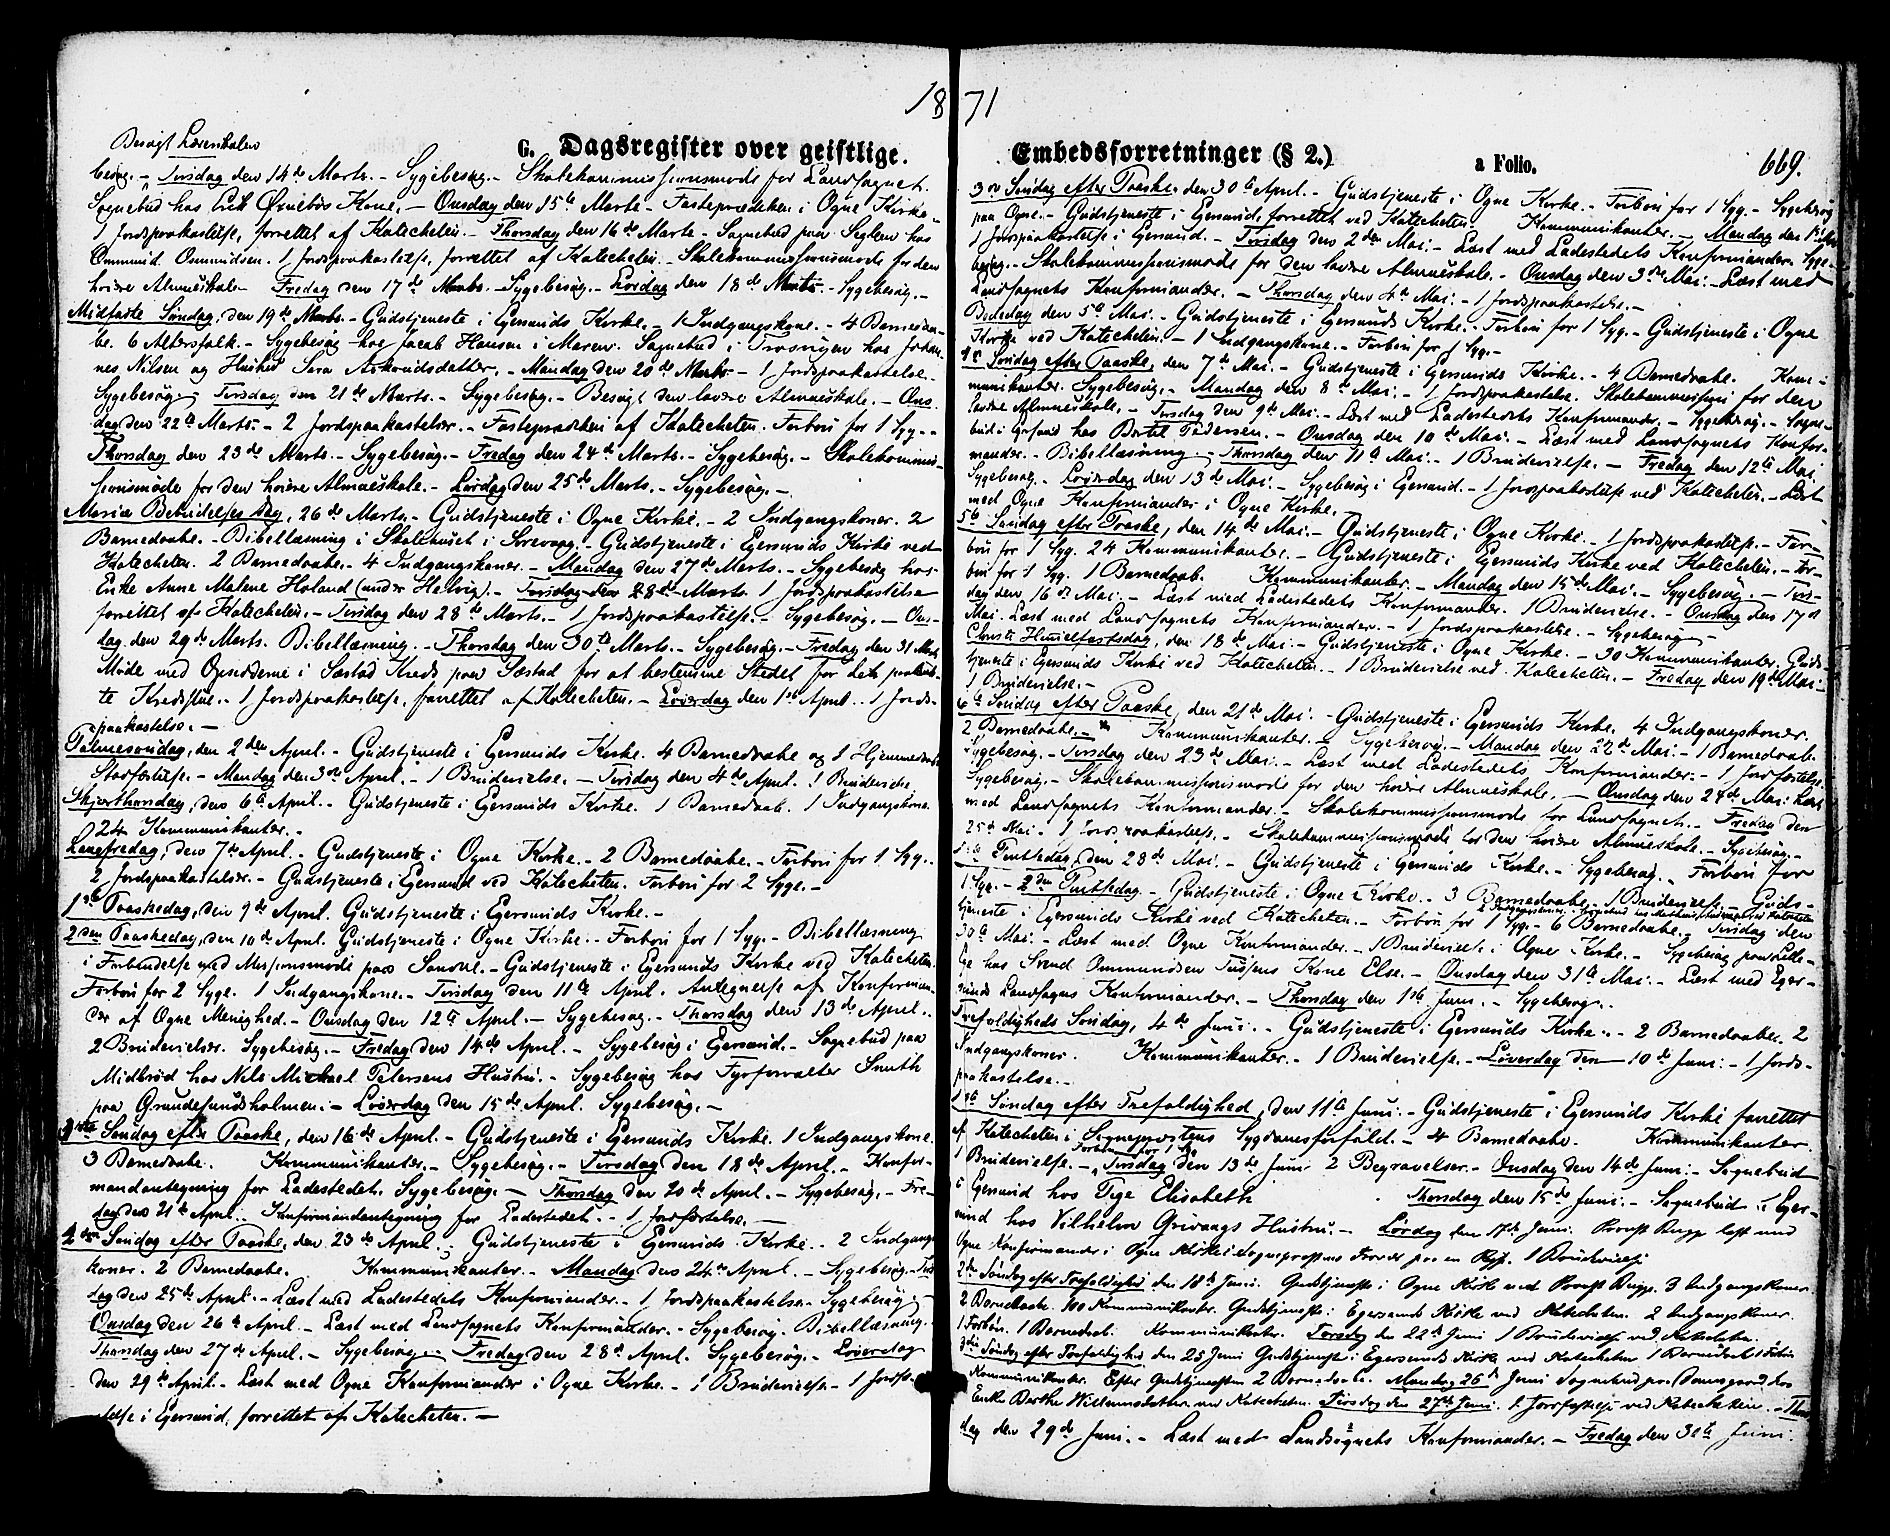 1871
G. Dagsregister over geistlige.
Besøgt Lærerskolen
besøg. - Tirsdag den 14de Marts. - Sygebesøg. - Skolekommissionsmøde for Landsognet.
Sognebud hos Erik Ørnebós Kone. - Onsdag den 15de Marts - Fasteprædiken i Ogne Kirke -
1 Jordspaakastelse, forrettet af Katecheten. - Thorsdag den 16de Marts - Sognebud paa Seglem hos
Ommund Ommundsen. 1 Jordspaakastelse, forrettet af Katecheten. - Skolekommissionsmøde for den
høiere Almueskole - Fredag den 17de Marts. - Sygebesøg. - Lørdag den 18de Marts. - Sygebesøg. -
Midfaste Søndag, den 19de Marts. - Gudstjeneste i Egersunds Kirke. - 1 Indgangskone. - 4 Barnedaa-
be. 6 Altersfolk. - Sygebesøg hos Jacob Hansen i Maren. Sognebud i hos Johan-
nes Nilsen og Hustru Sara Asbrudsdatter. - Mandag den 20de Marts - 1 Jordspaakastelse.
Sygebesøg. Tirsdag den 21de Marts. - Sygebesøg. - Besøgt den lavere Almueskole. - Ons-
dag den 22de Marts. - 2 Jordspaakastelser. - Fasteprædiken af Katecheten. Forbøn for 1 Syg. -
Thorsdag den 23de Marts. - Sygebesøg. - Fredag den 24de Marts. - Sygebesøg. - Skolekommis-
sionsmøde for den høiere Almueskole. - Lørdag den 25de Marts. - Sygebesøg. -
Mariæ Bebudelses Dag, 26de Marts - Gudstjeneste i Ogne Kirke. - 2 Indgangskoner. 2
Barnedaabe. - Bibellæsning i Skolehuset i Sirevaag. - Gudstjeneste i Egersunds Kirke ved
Katecheten. 2 Barnedaabe. - 4 Indgangskoner. - Mandag den 27de Marts. - Sygebesøg hos
Enke Anne Malene Holand (under Helvig). - Tirsdag den 28de Marts 1 Jordspaakastelse
forrettet af Katecheten. - Tirsdag den 28de Marts. - 1 Jordspaakastelse. - Sygebesøg. - Ons-
dag den 29de Marts. Bibellæsning. - Thorsdag den 30te Marts. - Sygebesøg. - Fredag den 31 Marts
Møde med Opsidderne i Søstad Kreds paa Søstad for at bestemme Stedet for det
te Kredshus. - 1 Jordspaakastelse, forrettet af Katecheten. - Løverdag den 1ste April. - 1 Jords-
paakastelse. -
Palmesøndag, den 2den April. - Gudstjeneste i Egersunds Kirke. 4 Barnedaabe og 1 Hjemmedaabs
Stadfæstelse. - Mandag den 3die April. - 1 Brudevielse. - Tirsdag den 4de April. 1 Brudevielse.
Skjærthorsdag, den 6te April. - Gudstjeneste i Egersunds Kirke. 1 Barnedaab. 1 Indgangskone.
24 Kommunikanter. -
Langfredag, den 7de April. - Gudstjeneste i Ogne Kirke. - 2 Barnedaabe. - Forbøn for 1 Syg. -
2 Jordspaakastelser. - Gudstjeneste i Egersund ved Katecheten. Forbøn for 2 Syge. -
1ste Paaskedag, den 9de April. Gudstjeneste i Egersunds Kirke. -
2den Paaskedag, den 10de April. Gudstjeneste i Ogne Kirke. - Forbøn for 1 Syg. - Bibellæsning
i Forbindelse med Missionsmøde paa . - Gudstjeneste i Egersunds Kirke ved Katecheten.
Forbøn for 2 Syge. 1 Indgangskone. - Tirsdag den 11te April. Antegnelse af Konfirman-
der af Ogne Menighed. - Onsdag den 12te April. - Sygebesøg. - Thorsdag den 13de April. -
2 Brudevielser. Sygebesøg. - Fredag den 14de April. - Sygebesøg i Egersund. - Sognebud paa
Midbrød hos Nels Michael Petersens Hustru. - Sygebesøg hos Fyrforvalter Smith
paa Grundesundsholmen. - Løverdag den 15de April. Sygebesøg. -
1ste Søndag efter Paaske, den 16de April. - Gudstjeneste i Egersunds Kirke. 1 Indgangskone.
3 Barnedaabe. Kommunikanter. - Sygebesøg. - Tirsdag den 18de April. - Konfir-
mandantegning for Ladestedet. Sygebesøg. - Thorsdag den 20de April. - Sygebesøg. - Fre-
dag den 21de April. Konfirmandantegning for Ladestedet. - 1 Jordfæstelse. -
2den Søndag efter Paaske, den 23de April. Gudstjeneste i Egersunds Kirke. - 2 Indgangs-
koner. 2 Barnedaabe. Kommunikanter. - Mandag den 24de April. - Sygebesøg. - Tirs-
dag den 25de April. - Læst med Ladestedets Konfirmander. - 1 Jordspaakastelse. Sygebesøg. -
Onsdag den 26de April. - Læst med Landsognets Konfirmander. - Sygebesøg. Bibellæsning.
Thorsdag den 27de April. - Sygebesøg. - Fredag den 28de April. Sygebesøg. - Løverdag
den 29de April. - Læst med Ogne Konfirmander i Ogne Kirke. - 1 Brudevielse - 1 Jordfæ-
stelse i Egersund, forrettet af Katecheten. -
Embedsforretninger (§ 2.)
a Folio.
669.
3die Søndag efter Paaske, den 30te April. - Gudstjeneste i Ogne Kirke. - Forbøn for 1 Syg. - Sygebesøg
paa Ogne. - Gudstjeneste i Egersund, forrettet ved Katecheten. Kommunikanter. - Mandag den 1ste Mai
1 Jordspaakastelse i Egersund. - Tirsdag den 2den Mai. - Læst med Ladestedets Konfirmander. Syge-
besøg. - Skolekommissionsmøde for den lavere Almueskole. - Onsdag den 3die Mai. - Læst med
Landsognets Konfirmander. - Thorsdag den 4de Mai. - 1 Jordspaakastelse. -
Bededag den 5te Mai. - Gudstjeneste i Egersunds Kirke. - Forbøn for 1 Syg. - Gudstjeneste i Ogne
Kirke ved Katecheten. - 1 Indgangskone. - Forbøn for 1 Syg. -
4de Søndag efter Paaske, den 7de Mai. - Gudstjeneste i Egersunds Kirke. - 4 Barnedaabe. Kom-
munikanter. Sygebesøg. - Mandag den 8de Mai. - 1 Jordspaakastelse. Skolekommission for den
lavere Almueskole. - Tirsdag den 9de Mai. - Læst med Ladestedets Konfirmander. - Sygebesøg. - Sogne-
bud i hos Bertil Pedersen. - Onsdag den 10de Mai. - Læst med Landsognets Konfir-
mander. - Bibellæsning. - Thorsdag den 11te Mai. - 1 Brudevielse. - Fredag den 12te Mai
Sygebesøg. - Løverdag den 13de Mai. - Sygebesøg i Egersund. - 1 Jordspaakastelse ved Katecheten. - Læst
med Ogne Konfirmander i Ogne Kirke. -
5te Søndag efter Paaske, den 14de Mai. - Gudstjeneste i Ogne Kirke. - 1 Jordspaakastelse. - For-
bøn for 1 Syg. 24 Kommunikanter. - Gudstjeneste i Egersunds Kirke ved Katecheten. - For-
bøn for 1 Syg. 1 Barnedaab. Kommunikanter. - Mandag den 15de Mai. - Sygebesøg. - Tirs-
dag den 16de Mai. - Læst med Ladestedets Konfirmander. 1 Brudevielse. - Onsdag den 17de
Mai. Læst med Landsognets Konfirmander. - 1 Jordspaakastelse. - Sygebesøg. -
Christi Himmelfartsdag, den 18de Mai. - Gudstjeneste i Ogne Kirke. - 30 Kommunikanter. Guds-
tjeneste i Egersunds Kirke ved Katecheten. - 1 Brudevielse ved Katecheten. - Fredag den 19de Mai. -
1 Brudevielse. -
6te Søndag efter Paaske, den 21de Mai. - Gudstjeneste i Egersunds Kirke. 4 Indgangskoner.
2 Barnedaabe. - Kommunikanter. - Sygebesøg. - Mandag den 22de Mai. - 1 Barnedaab.
Sygebesøg. - Tirsdag den 23de Mai. - Læst med Ladestedets Konfirmander. - 1 Jordfæstelse.
Sygebesøg. - Skolekommissionsmøde for den høiere Almueskole. - Onsdag den 24de Mai. Læst
med Landsognets Konfirmander. - Skolekommissionsmøde for Landsognet. - Fredag den
25de Mai. - 1 Jordspaakastelse. - Skolekommissionsmøde for den høiere Almueskole. - Sygebesøg. -
1ste Pintsedag, den 28de Mai. - Gudstjeneste i Egersunds Kirke. - Sygebesøg. - Forbøn for
1 Syg. - 2den Pintsedag. - Gudstjeneste i Ogne Kirke. - 3 Barnedaabe. - 1 Brudevielse. - Guds-
tjeneste i Egersunds Kirke ved Katecheten. - Forbøn for 1 Syg. - 6 Barnedaabe. - Tirsdag den
30te Mai. - Læst med Ogne Konfirmander. - 1 Brudevielse i Ogne Kirke. - Sygebesøg paa
hos Svend Ommundsen Kone Else. - Onsdag den 31te Mai. - Læst med Eger-
sunds Landsogns Konfirmander. - Thorsdag den 1ste Juni. - Sygebesøg. -
Trefoldigheds Søndag, 4de Juni. - Gudstjeneste i Egersunds Kirke. - 2 Barnedaabe. 2
Indgangskoner. Kommunikanter. - 1 Brudevielse. - Løverdag den 10de Juni. - 1 Jords-
paakastelse. -
1ste Søndag efter Trefoldighed, den 11te Juni. - Gudstjeneste i Egersunds Kirke forrettet
af Katecheten i Sogneprestens Sygdomsforfald. - 4 Barnedaabe. Kommunikanter.
Forbøn for 1 Syg
1 Brudevielse. - Tirsdag den 13de Juni 2 Begravelser. - Onsdag den 14de Juni. - Sognebud
i Egersund hos Pige Elisabeth Thorsdag den 15de Juni. - Sognebud i Eger-
sund hos Vilhelm Grivangs Hustru. - Lørdag den 17de Juni. Provst læst med
Ogne Konfirmander i Ogne Kirke i Sogneprestens Fravær paa en Reise. 1 Brudevielse
2den Søndag efter Trefoldighed den 18de Juni. Gudstjeneste i Ogne Kirke ved Provst 3 Indgangskoner
2 Barnedaabe. 100 Kommunikanter. Gudstjeneste i Egersunds Kirke ved Katecheten. 2 Indgangskoner.
1 Forbøn. 1 Barnedaab. Kommunikanter. Torsdag den 22de Juni 1 Brudevielse ved Katecheten.
3die Søndag efter Trefoldighed den 25 Juni Gudstjeneste i Egersunds Kirke ved Katecheten 1 Barnedaab 1 Forbøn
Kommunikanter. Efter Gudstjenesten 2 Barnedaabe. Mandag 26de Juni Sognebud paa hos
Enke Berthe Willumsdatter ved Katecheten. Tirsdag den 27de Juni. 1 Jordfæstelse ved Katecheten. - Thors-
dag den 29de Juni. - Læst med Landsognets Konfirmander. - Fredag den 30te Juni.